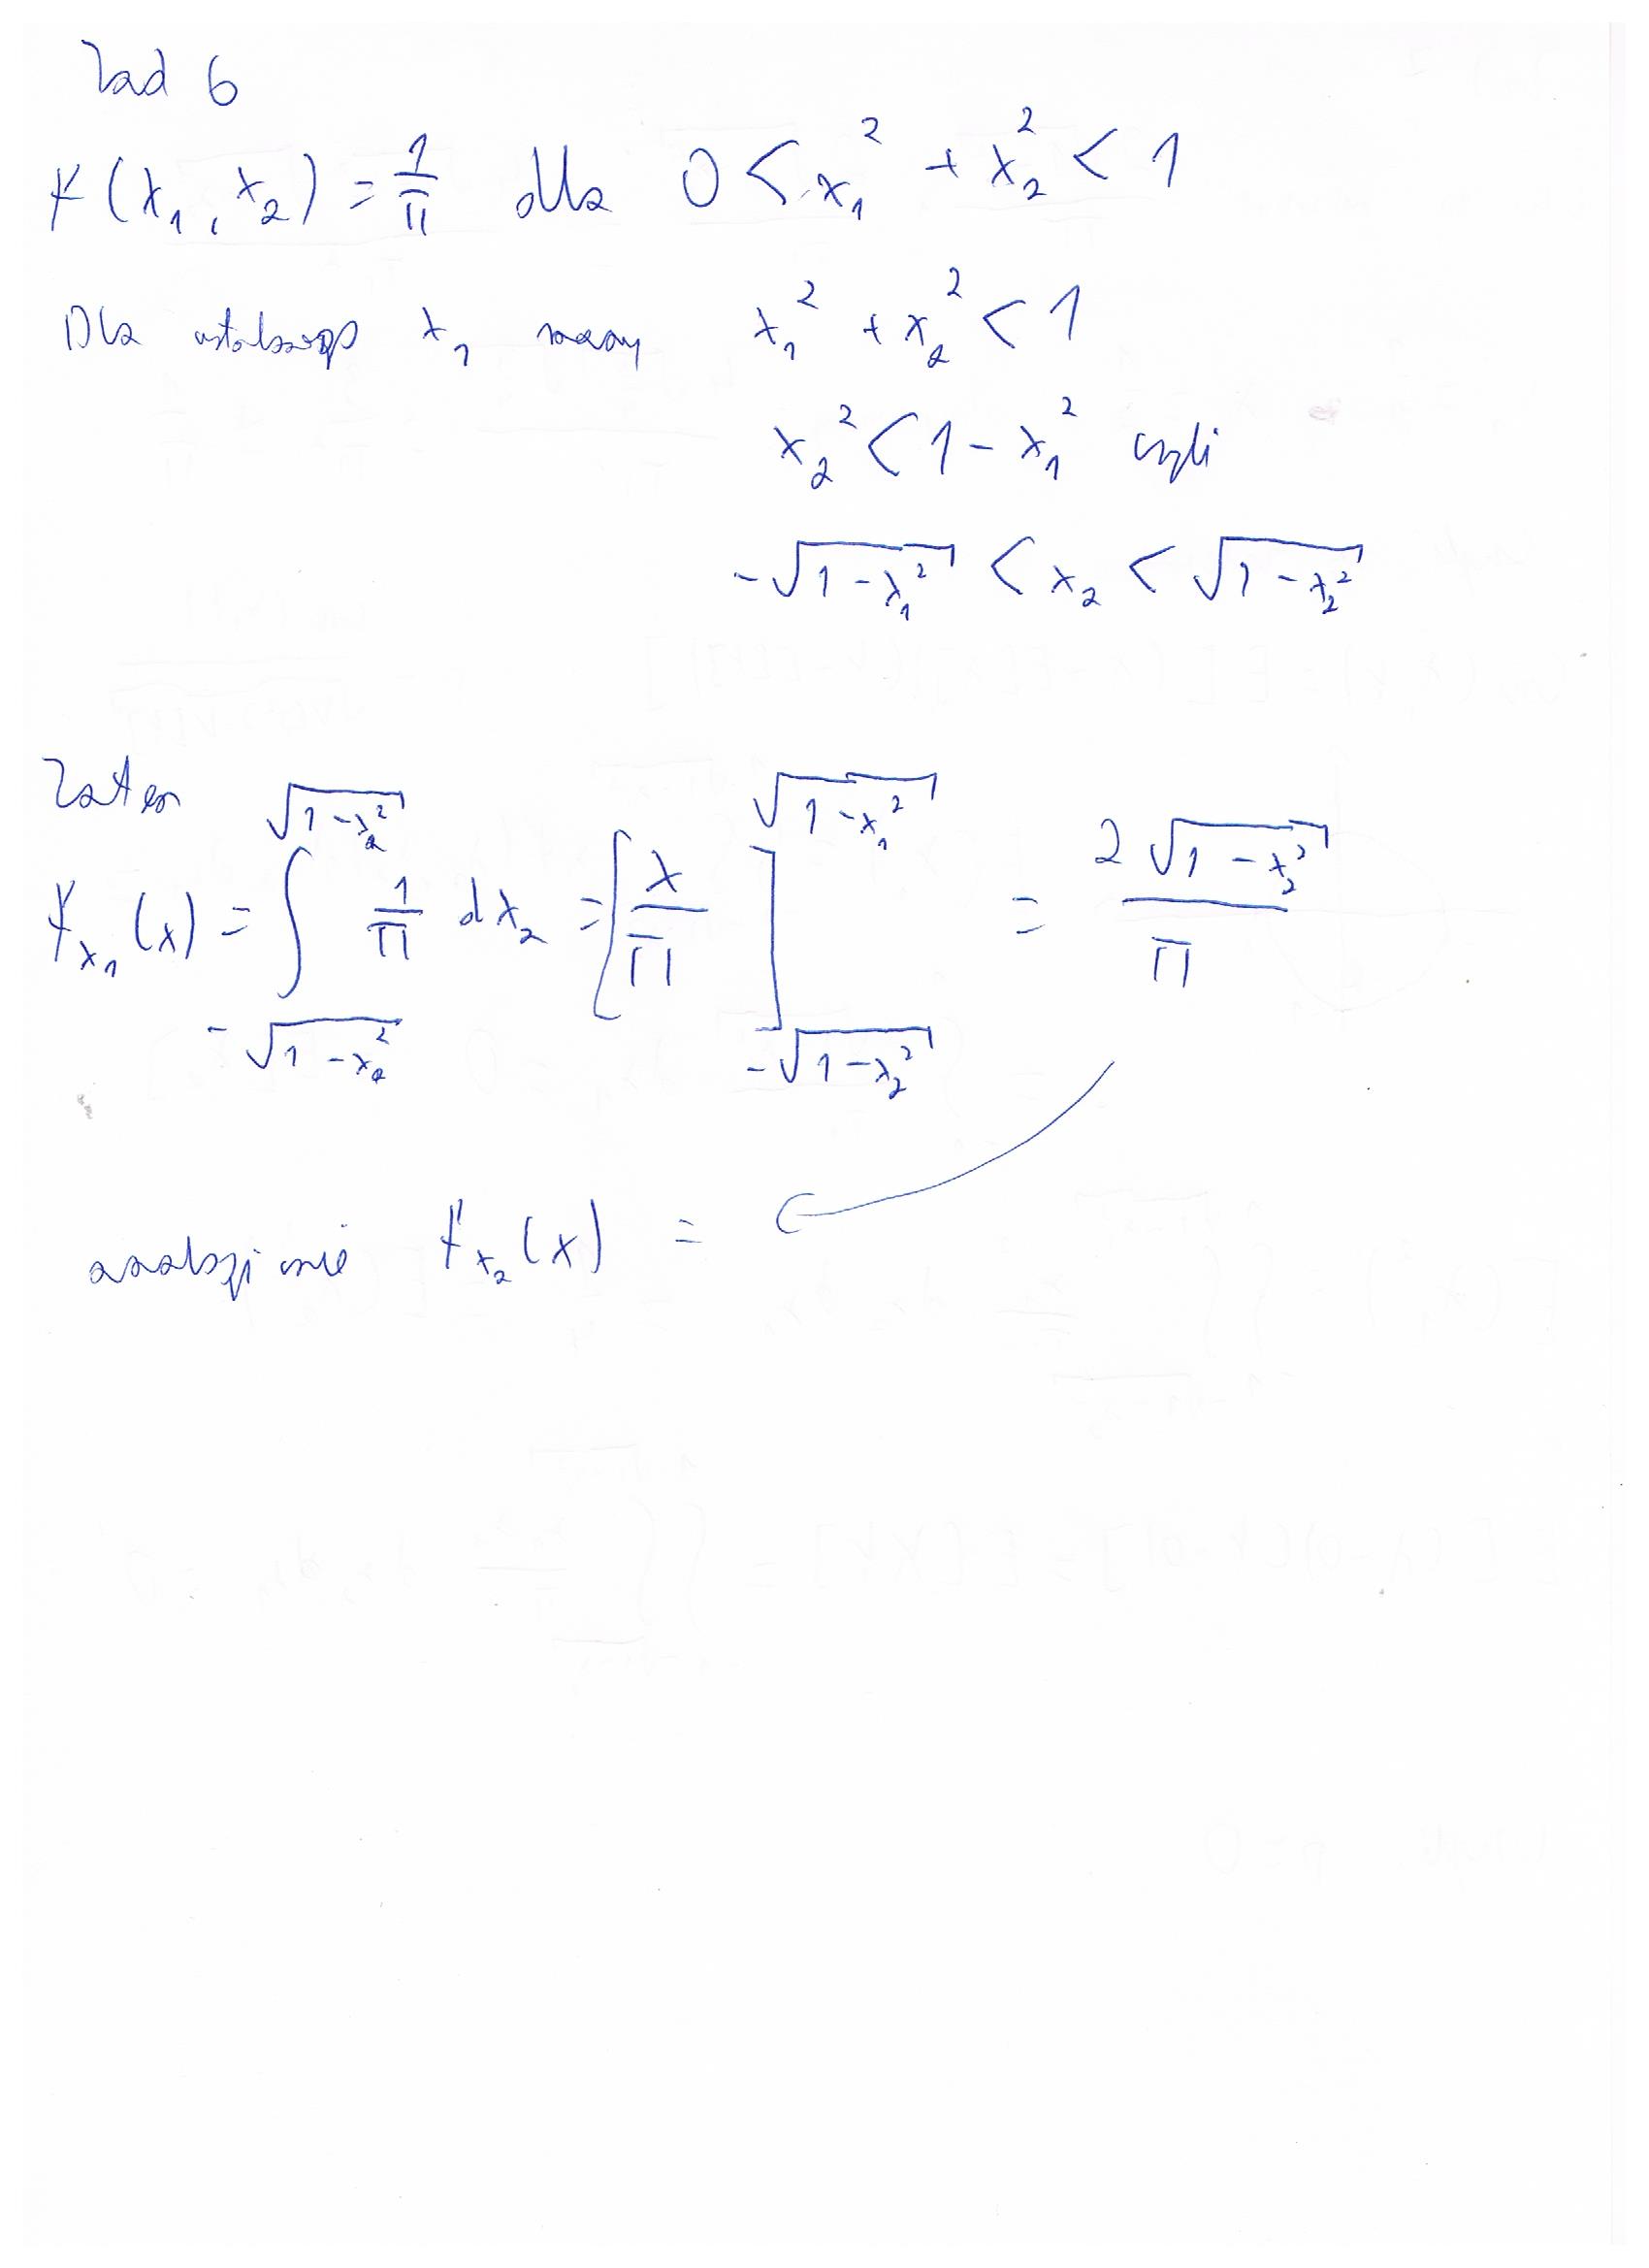 Zad 6
f(x₁, x₂) = 1/π dla 0 < x₁² + x₂² < 1
Dla ustalonego x₁ mamy x₁² + x₂² < 1
x₂² < 1 - x₁² czyli
-√(1 - x₁²) < x₂ < √(1 - x₂²)
Zatem
f_x₁(x) = ∫_{-√(1 - x₂²)}^{√(1 - x₂²)} 1/π dx₂ = [x/π]_{-√(1 - x₂²)}^{√(1 - x₁²)} = 2√(1 - x₂²)/π
analogicznie f_x₂(x) =